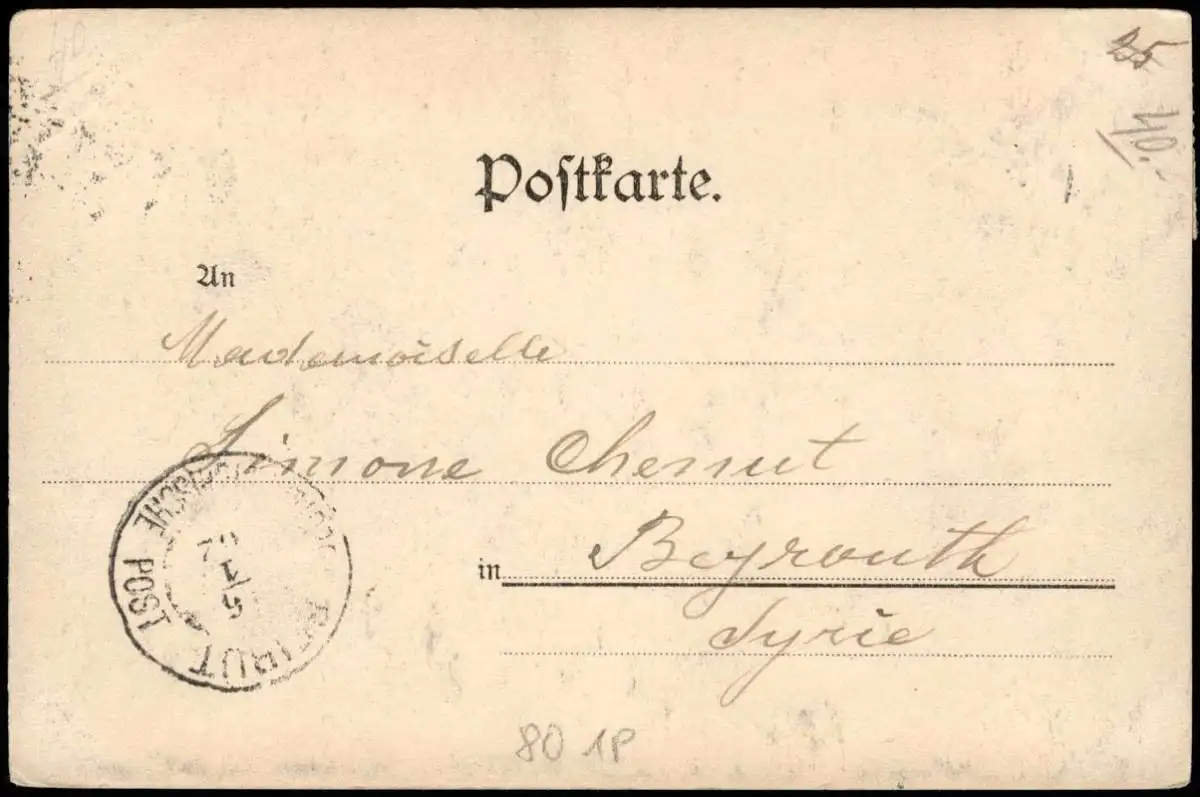 25
Postkarte.
An
Mademoiselle
Simone Chenut
in Beyrouth
Syrie
POST
80 1P